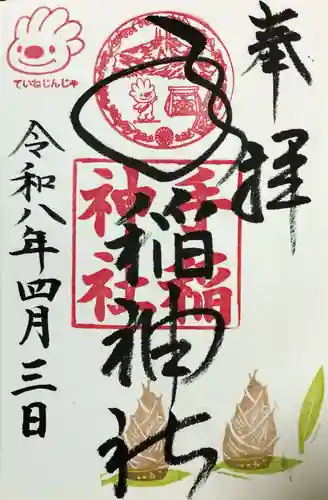 奉拝
手稲神社
手稲神社
令和八年四月三日
ていねじんじゃ